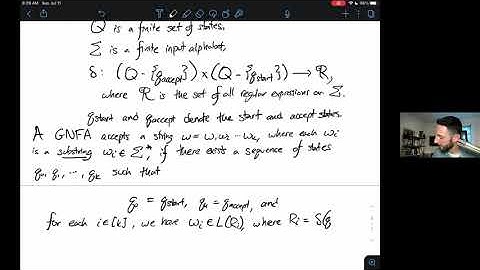 9:28 AM Sun Jul 11
Q is a finite set of states.
Σ is a finite input alphabet.
δ: (Q - {qaccept}) × (Q - {qstart}) → R,
where R is the set of all regular expressions on Σ.
qstart and qaccept denote the start and accept states.
A GNFA accepts a string w = w1w2...wk, where each wi
is a substring wi ∈ Σ*, if there exists a sequence of states
q0, q1, ..., qk such that
q0 = qstart, qk = qaccept, and
for each i∈[k], we have wi∈L(Ri), where Ri = δ(q